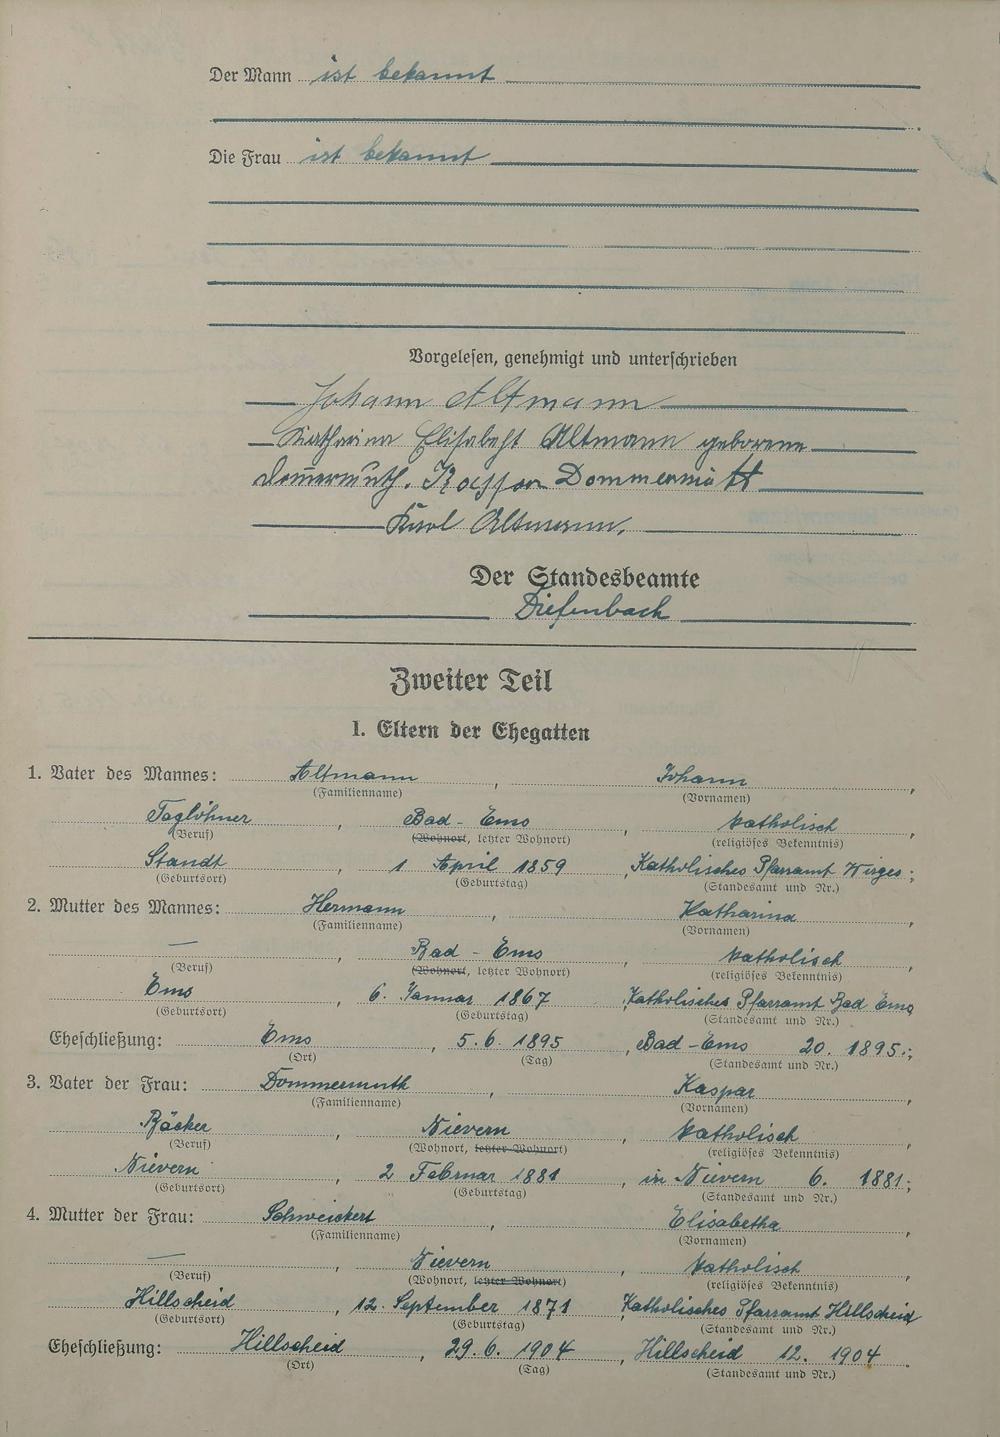 Der Mann ist bekannt
Die Frau ist bekannt
Vorgelesen, genehmigt und unterschrieben
Johann Altmann
Katharina Elisabeht Altmann geborene
Dommermuth. Kaspar Dommermutt
Karl Altmann.
Der Standesbeamte
Diefenbach
Zweiter Teil
1. Eltern der Ehegatten
1. Vater des Mannes: Altmann, Johann,
(Familienname) (Vornamen)
Taglöhner, Bad-Ems, katholisch,
(Beruf) (Wohnort, letzter Wohnort) (religiöses Bekenntnis)
Standt, 1 April 1859, Katholisches Pfarramt Wirges;
(Geburtsort) (Geburtstag) (Standesamt und Nr.)
2. Mutter des Mannes: Hermann, Katharina,
(Familienname) (Vornamen)
—, Bad-Ems, katholisch,
(Beruf) (Wohnort, letzter Wohnort) (religiöses Bekenntnis)
Ems, 6. Januar 1867, Katholisches Pfarramt Bad Ems
(Geburtsort) (Geburtstag) (Standesamt und Nr.)
Eheschließung: Ems, 5.6.1895, Bad-Ems 20. 1895.;
(Ort) (Tag) (Standesamt und Nr.)
3. Vater der Frau: Dommermuth, Kaspar,
(Familienname) (Vornamen)
Bäcker, Nievern, katholisch,
(Beruf) (Wohnort, letzter Wohnort) (religiöses Bekenntnis)
Nievern, 2 Februar 1881, in Nievern 6. 1881;
(Geburtsort) (Geburtstag) (Standesamt und Nr.)
4. Mutter der Frau: Schweickert, Elisabetha,
(Familienname) (Vornamen)
—, Nievern, katholisch,
(Beruf) (Wohnort, letzter Wohnort) (religiöses Bekenntnis)
Hillscheid, 12. September 1871, Katholisches Pfarramt Hillscheid
(Geburtsort) (Geburtstag) (Standesamt und Nr.)
Eheschließung: Hillscheid, 29.6.1904, Hillscheid 12. 1904.
(Ort) (Tag) (Standesamt und Nr.)